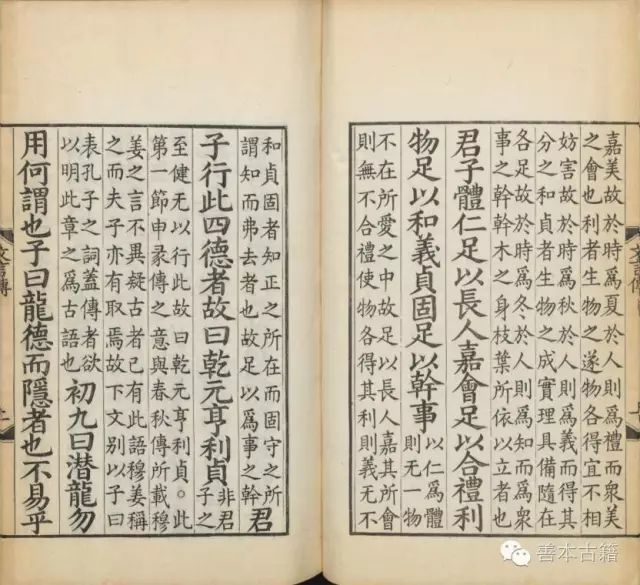 嘉美故於時爲夏於人則爲禮而衆美
之會也利者生物之遂物各得宜不相
妨害故於時爲秋於人則爲義而得其
分之和貞者生物之成實理具備隨在
各足故於時爲冬於人則爲知而爲衆
事之幹幹木之身枝葉所依以立者也
君子體仁足以長人嘉會足以合禮利
物足以和義貞固足以幹事
以仁爲體
則无一物
不在所愛之中故足以長人嘉其所會
則無不合禮使物各得其利則義无不
和貞固者知正之所在而固守之所
謂知而弗去者也故足以爲事之幹
君
子行此四德者故曰乾元亨利貞
非君
子之
至健无以行此故曰乾元亨利貞。此
第一節申彖傳之意與春秋傳所載穆
姜之言不異疑古者已有此語穆姜稱
之而夫子亦有取焉故下文別以子曰
表孔子之詞蓋傳者欲
以明此章之爲古語也
初九曰潛龍勿
用何謂也子曰龍德而隱者也不易乎
文言傳
善本古籍